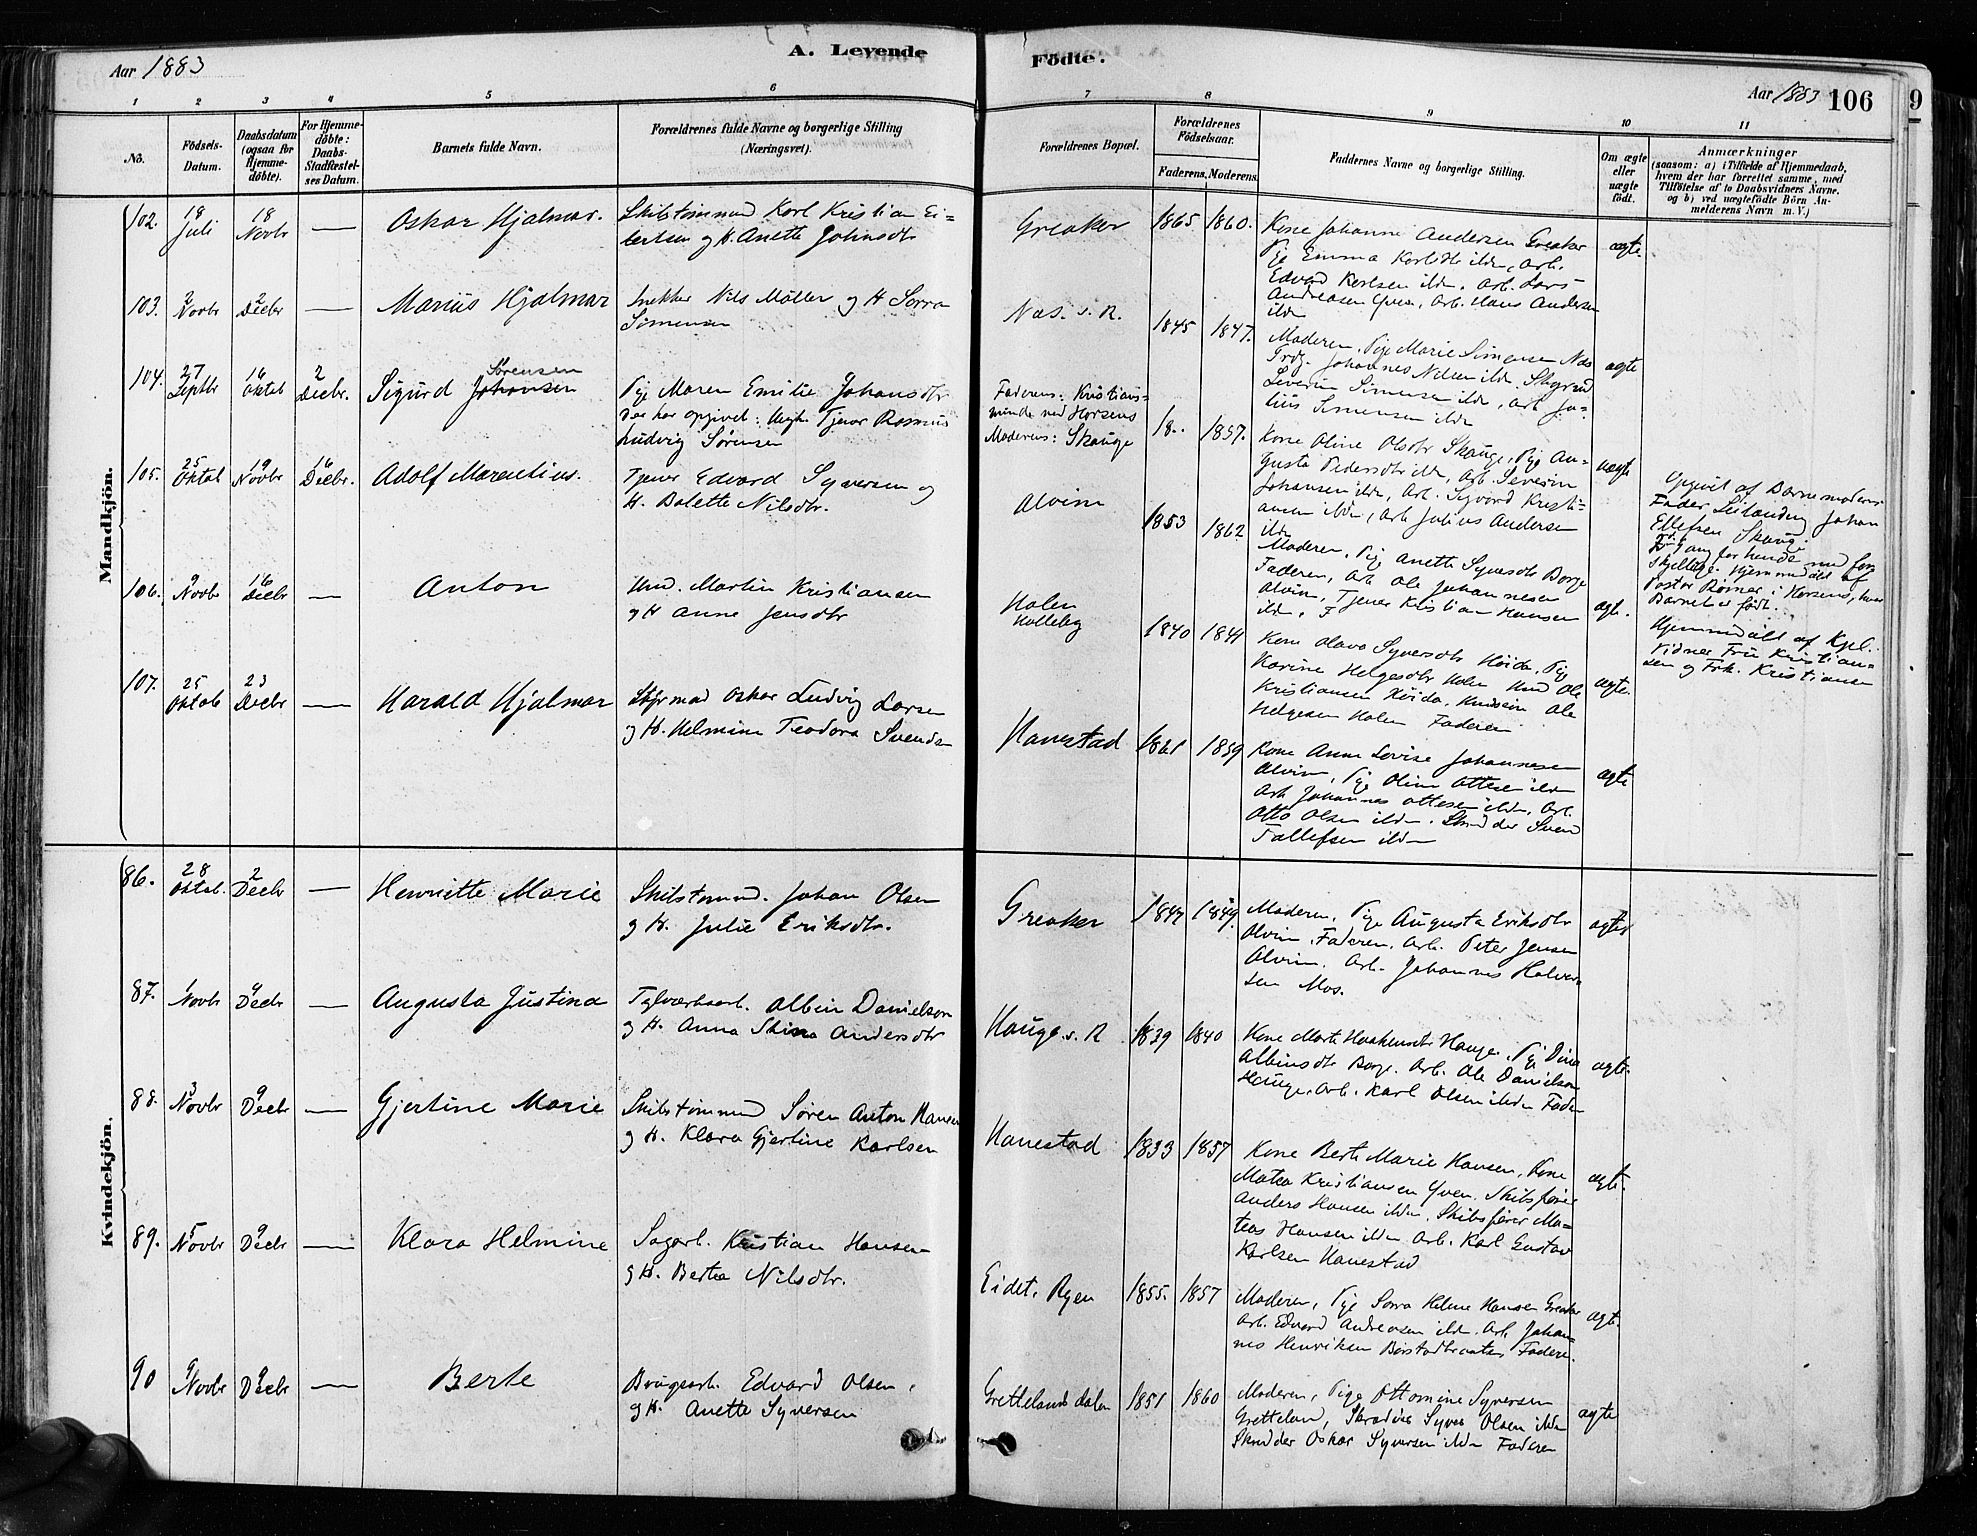 Aar 1883
A. Levende
Fødte.
Aar 1883 106
1 2 3 4 5 6 7 8 9 10 11
No.
Fødsels-Datum.
Daabsdatum (ogsaa for Hjemme-døbte).
For Hjemme-døbte: Daabs-Stadfæstel-ses Datum.
Barnets fulde Navn.
Forældrenes fulde Navne og borgerlige Stilling (Næringsvei).
Forældrenes Bopæl.
Forældrenes Fødselsaar.
Faderens. Moderens.
Faddernes Navne og borgerlige Stilling.
Om ægte eller uægte født.
Anmærkninger
(saasom: a) i Tilfælde af Hjemmedaab,
hvem der har forrettet samme, med
Tilføielse af to Daabsvidners Navne.
og b) ved uægtefødte Børn An-
melderens Navn m. V.)
Mandkjön.
102. 18 Juli 18 Novbr — Oskar Hjalmar.
Skibstømmmd Karl Kristian Ei-
bertsen og H. Anette Johnsdtr
Greaker 1865 1860.
Kone Johanne Andersen Greaker
Pige Emma Karlsdtr ildn, Arb.
Edvard Karlsen ildn, Arb. Lars
Andreasen Yven, Arb. Hans Andersen
ildn
ægte.
103. 2 Novbr 2 Decbr — Marius Hjalmar
Snekker Nils Møller og H Sorra
Simensen
Næs. s. R. 1845 1847.
Moderen, Pige Marie Simensen Næs
Grdr. Johannes Nilsen ildn,
Severin Simensen ildn, Arb Ju-
lius Simensen ildn
ægte
104. 27 Septbr 16 Oktob 2 Decbr. Sigurd Johansen Sørensen
Pige Maren Emilie Johansdtr
Der har opgivet: Ungk. Tjener Rasmus
Ludvig Sørensen
Faderens: Kristians-
minde ved Horsens
Moderens: Skauge
18.. 1857.
Kone Oline Olsdtr Skauge, Pige Au-
gusta Pedersdtr ildn, Arb. Severin
Johansen ildn, Arb. Sigvard Kristi-
ansen ildn, Arb Julius Andersen
ildn
uægte
Opgivet af Barnemoderens
Fader Johan
Ellefsen Skauge.
1ste Gang for hende med for-
skjellige. Hjemmedøbt af
Pastor Bømer i Horsens, hvor
Barnet er født.
105. 25 Oktob 19 Novbr 16 Decbr. Adolf Marentius.
Tjener Edvard Syversen og
H. Bolette Nilsdtr.
Alvim 1853 1862
Moderen, Pige Anette Syversdtr Borge
Faderen, Arb Ole Johannesen
Alvim, Tjener Kristian Hansen
ildn. F
ægte.
Hjemmedøbt af Kpel.
Vidner Fru Kristian-
sen og Frk. Kristiansen
106. 9 Novbr 16 Decbr — Anton
Hmd. Martin Kristiansen
og H Anne Jensdtr
Holen
Holleby
1840 1844
Kone Olava Syversdtr Høida, Pige
Karine Helgesdtr Holen Hmd Ole
Kristiansen Høida, Ole
Helgesen Holen Faderen
ægte.
107. 25 Oktob 23 Decbr — Harald Hjalmar
Styrmad Oskar Ludvig Larsen
og H. Helmine Teodora Svends
Hanestad 1861 1859
Kone Anne Lovise Johannesen
Alvim, Pige Oline Ottesen ildn
Arb Johannes Ottesen ildn, Arb.
Otto Olsen ildn. Skrædder Svend
Tallefsen ildn
ægte
Kvindekjön.
86. 28 Oktob. 2 Decbr — Henriette Marie
Skibstømmd. Johan Olsen
og H. Julie Eriksdtr.
Greaker 1844 1849.
Moderen, Pige Augusta Eriksdtr
Alvim, Faderen, Arb. Peter Jensen
Alvim, Arb. Johannes Halvor-
sen Mos.
ægte
87. 1 Novbr 9 Decbr — Augusta Justina
Teglværksarb. Albin Danielsen
og H. Anna Stina Andersdtr
Hauge s. R 1839 1840
Kone Marte Haakensdtr Hauge, Pige Dina
Albinsdtr Borge, Arb. Ole Danielsen
Hauge, Arb. Karl Olsen ildn Fader
ægte.
88. 3 Novbr 9 Decbr — Gjertine Marie
Skibstømmmd Søren Anton Hansen
og H. Klara Gjertine Karlsen
Hanestad 1833 1857
Kone Berte Marie Hansen, Kone
Matea Kristiansen Yven, Skibsfører
Anders Hansen ildn, Skibsfører Ma-
teas Hansen ildn Arb. Karl Gustav
Karlsen Hanestad
ægte.
89. 5 Novbr 9 Decbr — Klara Helmine
Sagarb. Kristian Hansen
og H. Bertea Nilsdtr.
Eidet, Ryen 1855. 1857
Moderen, Pige Sorra Helene Hansen Greaker
Arb. Edvard Andreasen ildn. Arb. Johan-
nes Henriksen Børstadbraaten, Fadere.
ægte.
90 9 Novbr 9 Decbr — Berte
Brugsarb. Edvard Olsen,
og H. Anette Syversen
Grettelund dalen 1851 1860
Moderen, Pige Ottomine Syversen
Grettelund, Skrædder Syver Olsen ildn
Skrædder Oskar Syversen ildn Faderen
ægte